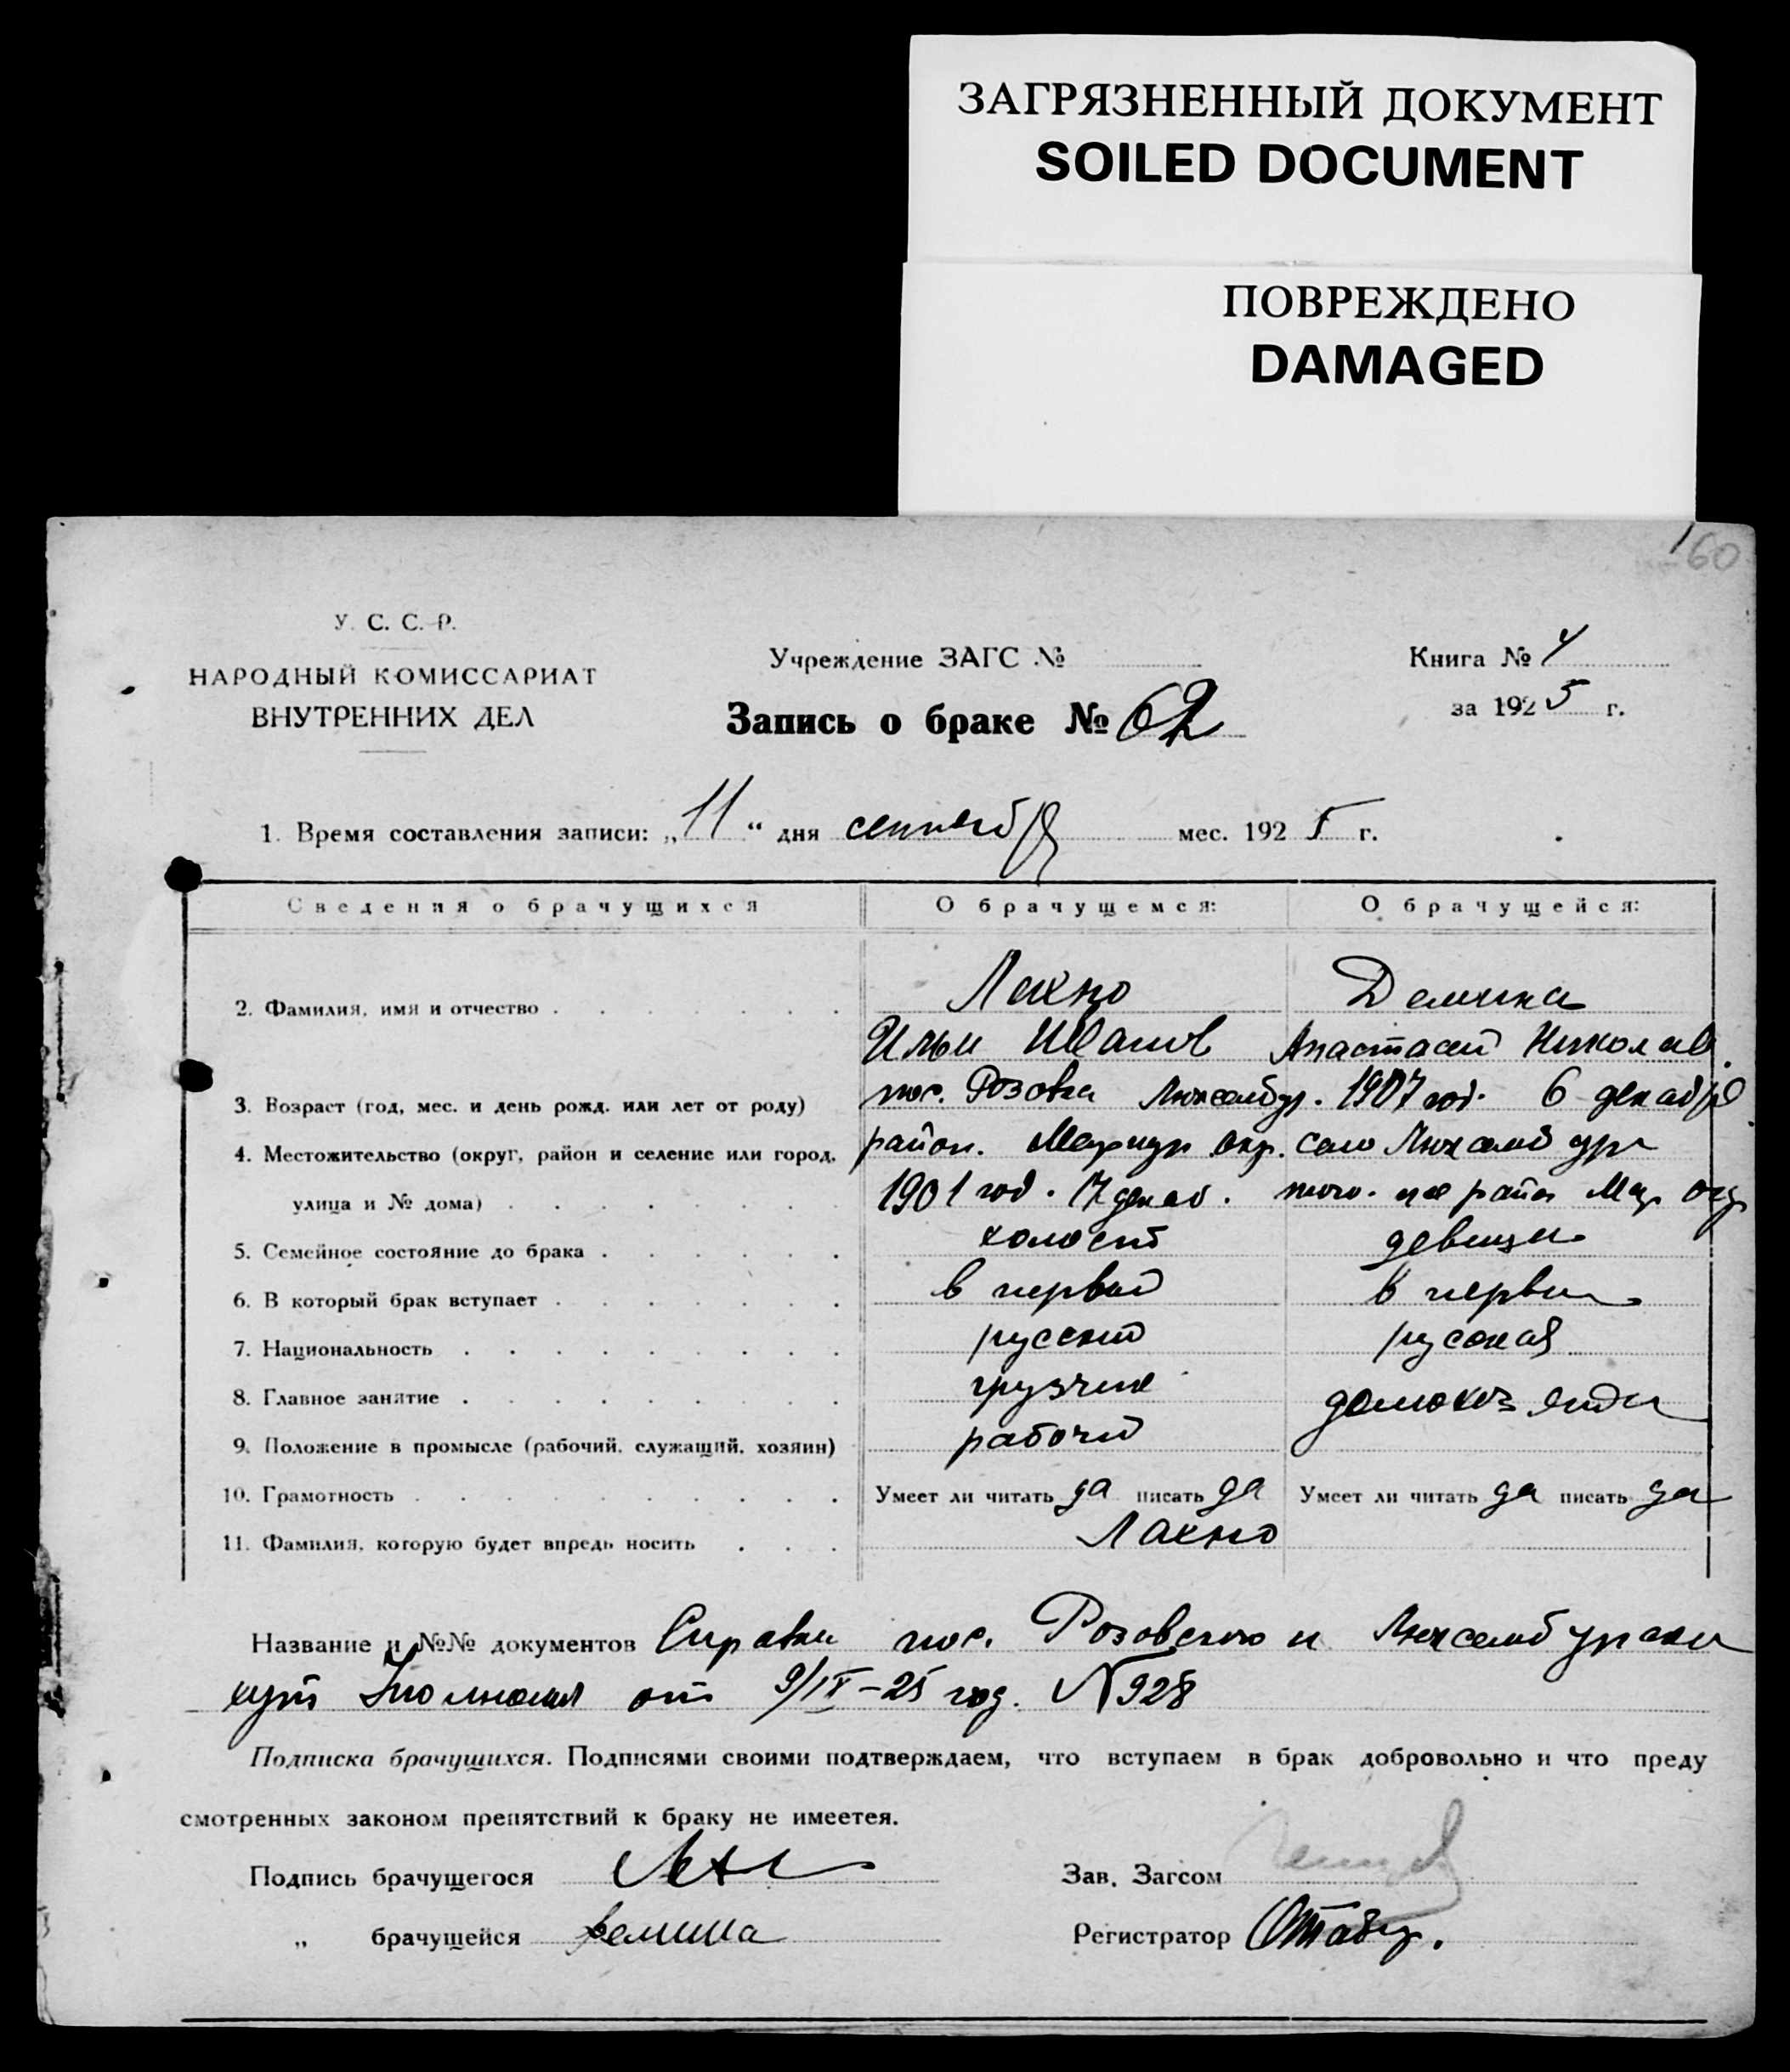 ЗАГРЯЗНЕННЫЙ ДОКУМЕНТ
SOILED DOCUMENT
ПОВРЕЖДЕНО
DAMAGED
160
У. С. С. Р.
НАРОДНЫЙ КОМИССАРИАТ
ВНУТРЕННИХ ДЕЛ
Учреждение ЗАГС №
Запись о браке № 62
Книга № 4
за 1925 г.
1. Время составления записи: „11“ дня сентябр мес. 1925 г.
Сведения о брачущихся О брачущемся: О брачущейся:
2. Фамилия, имя и отчество Лахно Демина
Илья Иванов Анастасий Николаев.
3. Возраст (год, мес. и день рожд. или лет от роду) пос. Розовка Люксембур. 1907 год. 6 декабря
4. Местожительство (округ, район и селение или город, район. Мариуп окр. село Люксембург
улица и № дома) 1901 год. 17 декаб. того же район Мар. окр
5. Семейное состояние до брака холост девица
6. В который брак вступает в первый в первый
7. Национальность русский русская
8. Главное занятие грузчик домохоз
9. Положение в промысле (рабочий, служащий, хозяин) рабочий
10. Грамотность Умеет ли читать да писать да Умеет ли читать да писать да
11. Фамилия, которую будет впредь носить Лахно
Название и №№ документов Справки пос. Розовского и
от 9/IX-25 год. N 928
Подписка брачущихся. Подписями своими подтверждаем, что вступаем в брак добровольно и что преду
смотренных законом препятствий к браку не имеетея.
Подпись брачущегося
Зав. Загсом
„ брачущейся Демина
Регистратор